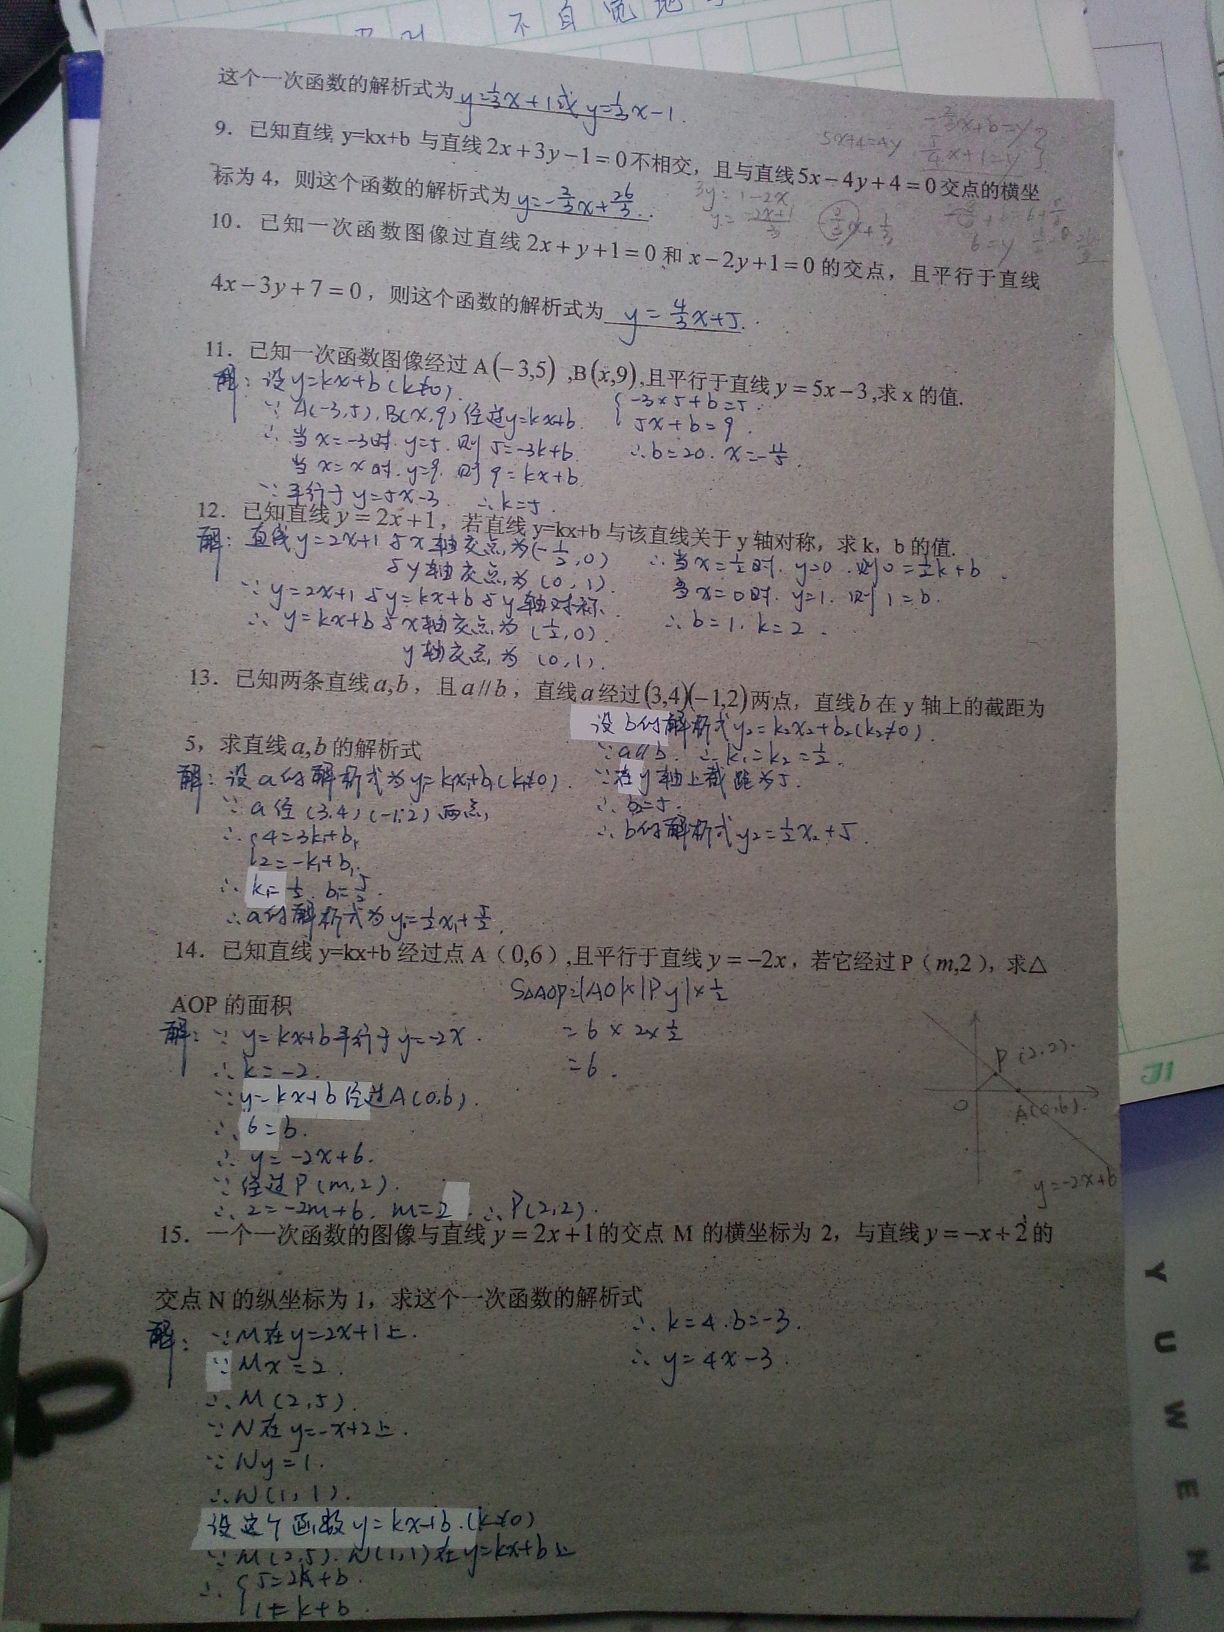 不自觉地
这个一次函数的解析式为 y=1/3x+1或 y=1/3x-1.
9. 已知直线 y=kx+b 与直线2x+3y-1=0不相交，且与直线5x-4y+4=0交点的横坐
标为 4，则这个函数的解析式为 y=-2/3x+26/3.
5x+4=4y
-2/3x+b=y
5/4x+1=y
3y=1-2x
y=-2x+1/3
6=y
10. 已知一次函数图像过直线 2x+y+1=0 和 x-2y+1=0 的交点，且平行于直线
4x-3y+7=0，则这个函数的解析式为 y=4/3x+5.
11. 已知一次函数图像经过 A(-3,5) ,B(x,9),且平行于直线 y=5x-3,求 x 的值.
解：设y=kx+b(k≠0).
∵ A(-3,5).B(x,9)经过y=kx+b.
∴ 当x=-3时.y=5.则 5=-3k+b.
当x=x时.y=9.则 9=kx+b.
∵ 平行于y=5x-3. ∴k=5.
{-3×5+b=5.
5x+b=9.
∴b=20. x=-11/5.
12. 已知直线 y=2x+1，若直线 y=kx+b 与该直线关于 y 轴对称，求 k，b 的值.
解：直线y=2x+1与x轴交点为(-1/2,0)
与y轴交点为(0,1).
∵ y=2x+1与y=kx+b与y轴对称.
∴ y=kx+b与x轴交点为(1/2,0).
y轴交点为(0,1).
∴当x=1/2时. y=0.则0=1/2k+b.
当x=0时.y=1.则1=b.
∴b=1.k=2.
13. 已知两条直线a,b，且a//b，直线a经过(3,4)(-1,2)两点，直线b在 y 轴上的截距为
5，求直线a,b的解析式
解：设a的解析式为y₁=k₁x₁+b₁(k₁≠0).
∵ a经(3,4)(-1,2)两点,
∴ {4=3k₁+b₁
2=-k₁+b₁.
∴ k₁=1/2. b₁=5/2.
∴a的解析式为y₁=1/2x₁+5/2.
设b的解析式y₂=k₂x₂+b₂(k₂≠0).
∵a//b. ∴k₁=k₂=1/2.
∵在y轴上截距为5.
∴ b₂=5.
∴ b的解析式y₂=1/2x₂+5.
14. 已知直线 y=kx+b 经过点 A（0,6）,且平行于直线 y=-2x，若它经过 P（m,2），求△
AOP 的面积
解：∵ y=kx+b平行于y=-2x.
∴k=-2.
∵y=kx+b经过A(0,6).
∴ 6=b.
∴ y=-2x+6.
∵ 经过P(m,2).
∴ 2=-2m+6. m=2. ∴P(2,2).
S△AOP=|AO|×|Py|×1/2
=6×2×1/2
=6.
P(2,2).
O
A(0,6).
y=-2x+6
15. 一个一次函数的图像与直线 y=2x+1的交点 M 的横坐标为 2，与直线 y=-x+2的
交点 N 的纵坐标为 1，求这个一次函数的解析式
解：∵M在y=2x+1上.
∵Mx=2.
∴M(2,5).
∵N在y=-x+2上.
∵Ny=1.
∴N(1,1).
设这个函数y=kx+b.(k≠0)
∵M(2,5).N(1,1)在y=kx+b上
∴ {5=2k+b.
1=k+b.
∴k=4.b=-3.
∴y=4x-3.
YUWEN